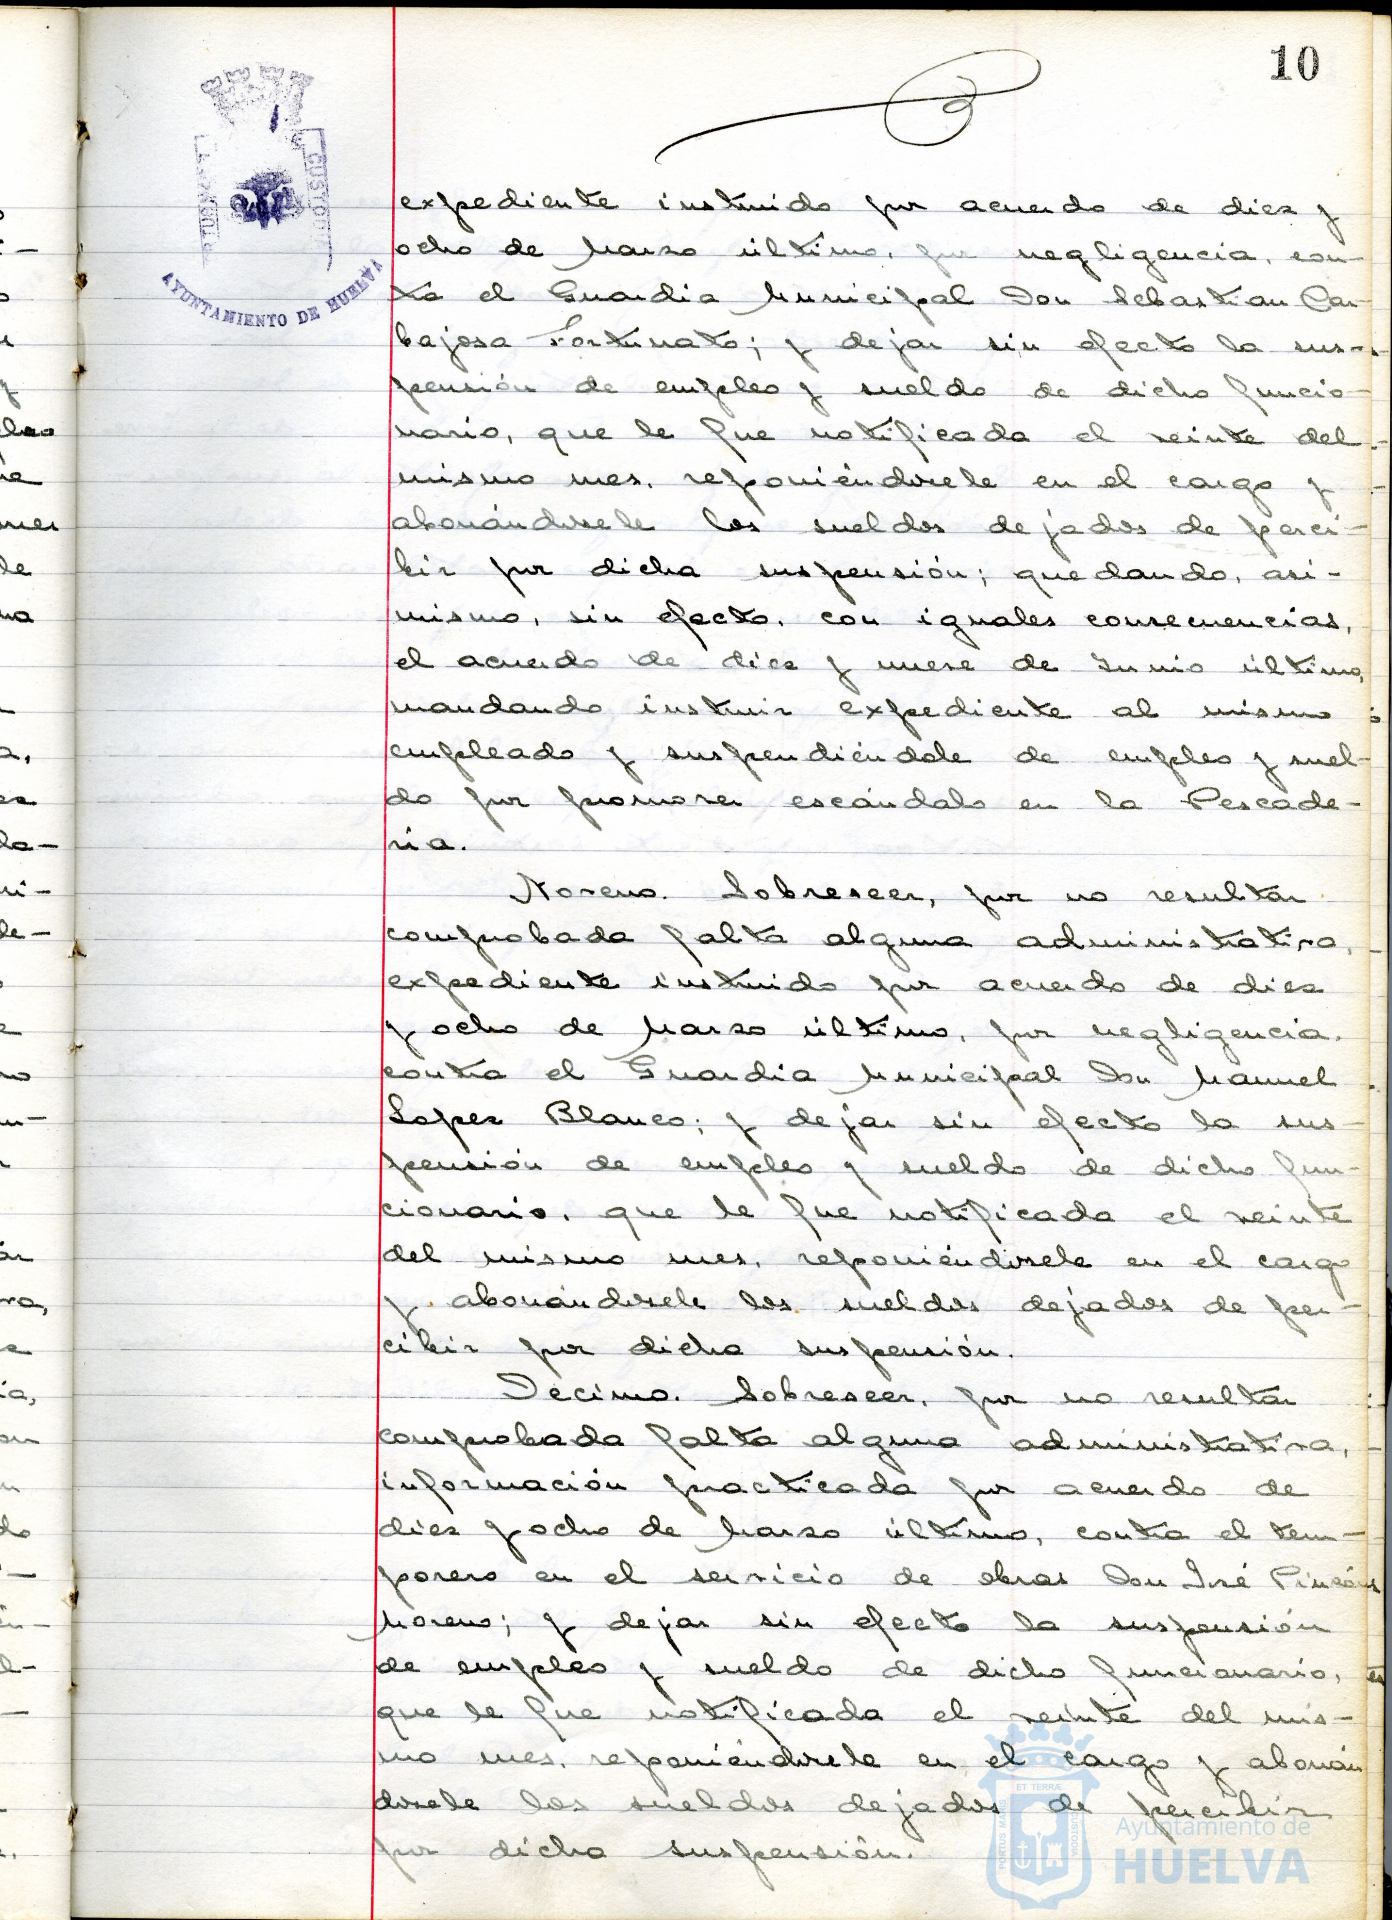 10
AYUNTAMIENTO DE HUELVA
expediente instruido por acuerdo de diez y
ocho de Marzo último, por negligencia, con-
tra el Guardia Municipal Don Sebastian Car-
bajosa Fortunato; y dejar sin efecto la sus-
pensión de empleo y sueldo de dicho funcio-
nario, que le fue notificada el veinte del
mismo mes, reponiéndosele en el cargo y
abonándosele los sueldos dejados de perci-
bir por dicha suspensión; quedando, asi-
mismo, sin efecto, con iguales consecuencias,
el acuerdo de diez y nueve de Junio último,
mandando instruir expediente al mismo
empleado y suspendiéndole de empleo y suel-
do por promover escándalo en la Pescade-
ría.
Noveno. Sobreseer, por no resultar
comprobada falta alguna administrativa,
expediente instruido por acuerdo de diez
y ocho de Marzo último, por negligencia,
contra el Guardia Municipal Don Manuel
Lopez Blanco; y dejar sin efecto la sus-
pensión de empleo y sueldo de dicho fun-
cionario, que le fue notificada el veinte
del mismo mes, reponiéndosele en el cargo
y abonándosele los sueldos dejados de per-
cibir por dicha suspensión.
Décimo. Sobreseer, por no resultar
comprobada falta alguna administrativa,
información practicada por acuerdo de
diez y ocho de Marzo último, contra el tem-
porero en el servicio de obras Don José
Moreno; y dejar sin efecto la suspensión
de empleo y sueldo de dicho funcionario,
que le fue notificada el veinte del mis-
mo mes, reponiéndosele en el cargo y abonán
dosele los sueldos dejados de percibir
por dicha suspensión.
Ayuntamiento de
HUELVA